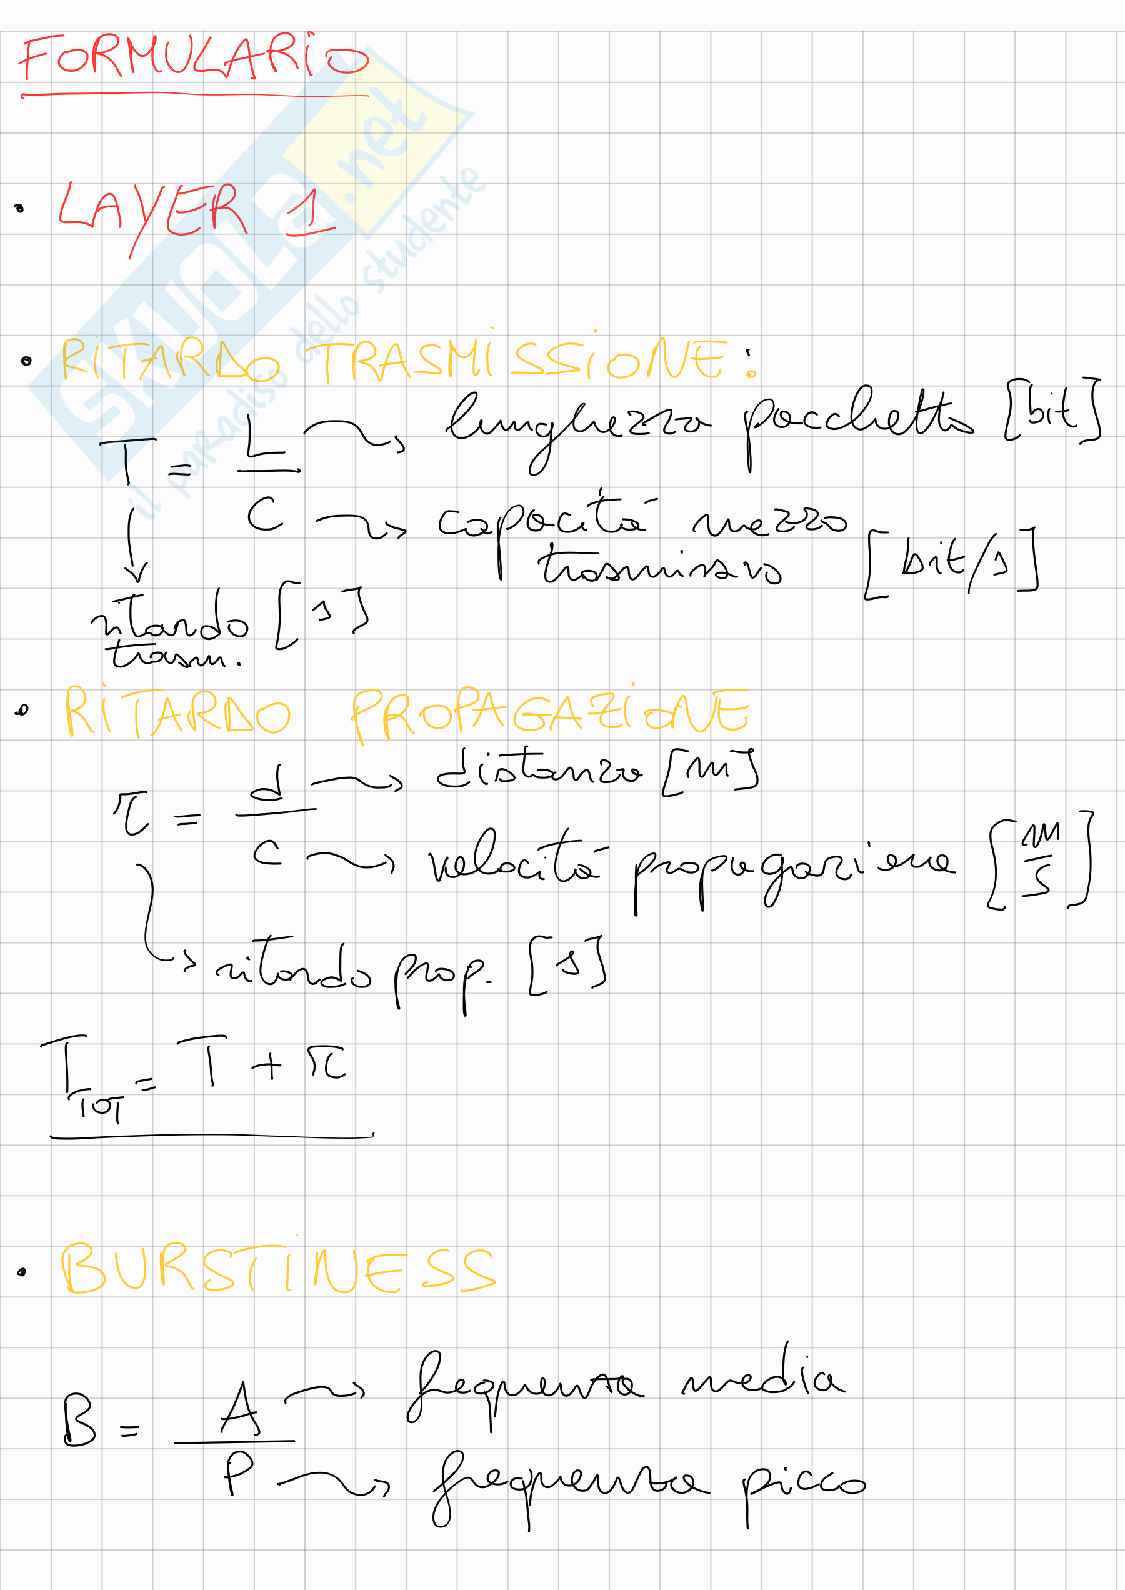 FORMULARIO
SKUOLA.net
il paradiso dello studente
• LAYER 1
• RITARDO TRASMISSIONE:
T = L/C
L → lunghezza pacchetto [bit]
C → capacitá mezzo
trasmissivo [bit/s]
ritardo [s]
trasm.
• RITARDO PROPAGAZIONE
τ = d/c
d → distanza [m]
c → velocitá propagazione [m/s]
ritardo prop. [s]
T_TOT = T + τ
• BURSTINESS
B = A/P
A → fequenza media
P → frequenza picco